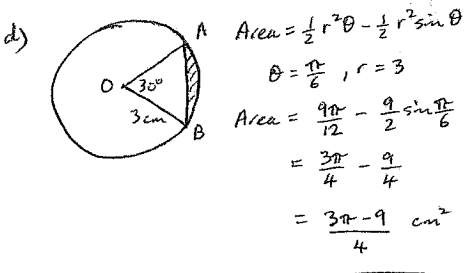 d)
A
O 30°
3cm
B
Area = 1/2 r²θ - 1/2 r² sin θ
θ = π/6 , r = 3
Area = 9π/12 - 9/2 sin π/6
= 3π/4 - 9/4
= (3π - 9)/4 cm²